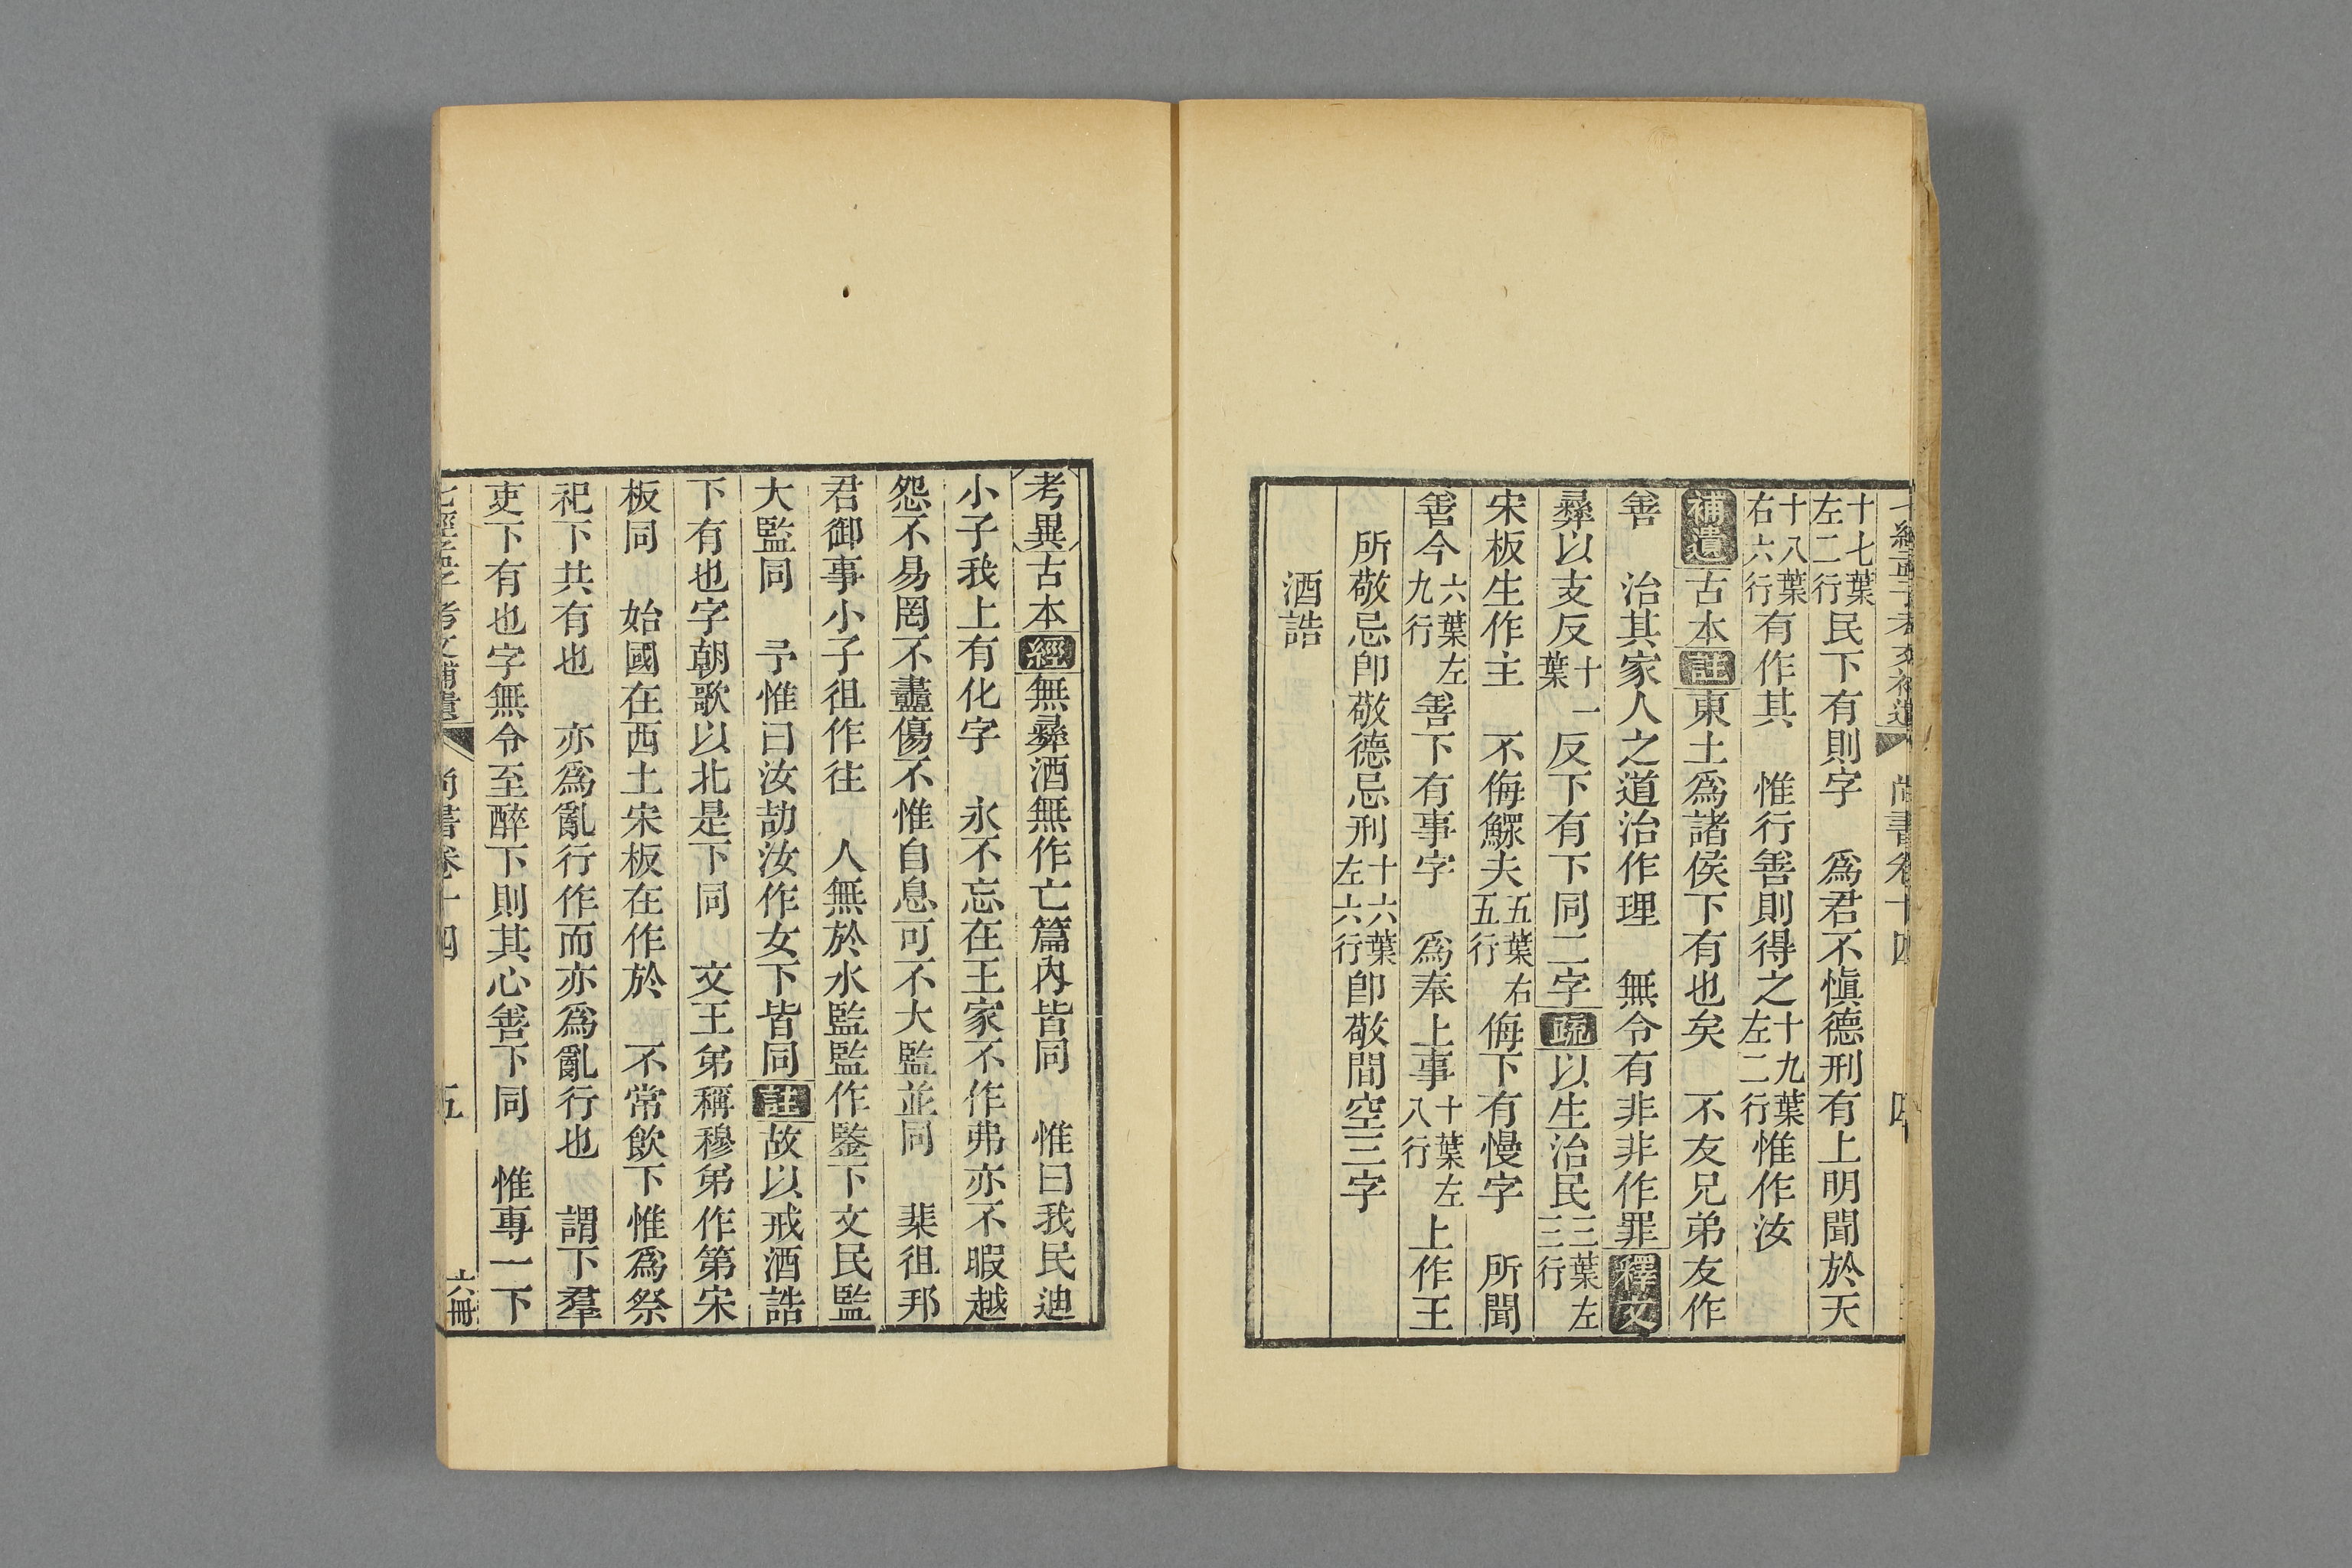 十七葉左二行民下有則字　爲君不愼德刑有上明聞於天
十八葉右六行有作其　惟行善則得之十九葉左二行惟作汝
補遺古本註東土爲諸侯下有也矣　不友兄弟友作
善　治其家人之道治作理　無令有非非作罪釋文
彞以支反十一葉反下有下同二字疏以生治民三葉左三行
宋板生作主　不侮鰥夫五葉右五行侮下有慢字　所聞
善今六葉左九行善下有事字　爲奉上事十葉左八行上作王
所敬忌卽敬德忌刑十六葉左六行卽敬間空三字
酒誥
考異古本經無彞酒無作亡篇內皆同　惟曰我民迪
小子我上有化字　永不忘在王家不作弗亦不暇越
怨不易罔不盡傷不惟自息可不大監並同　棐徂邦
君御事小子徂作往　人無於水監監作鑒下文民監
大監同　予惟曰汝劼汝作女下皆同註故以戒酒誥
下有也字朝歌以北是下同　文王弟稱穆弟作第宋
板同　始國在西土宋板在作於　不常飮下惟爲祭
祀下共有也　亦爲亂行作而亦爲亂行也　謂下羣
吏下有也字無令至醉下則其心善下同　惟專一下
七經孟子考文補遺　尚書卷十四　五　六冊